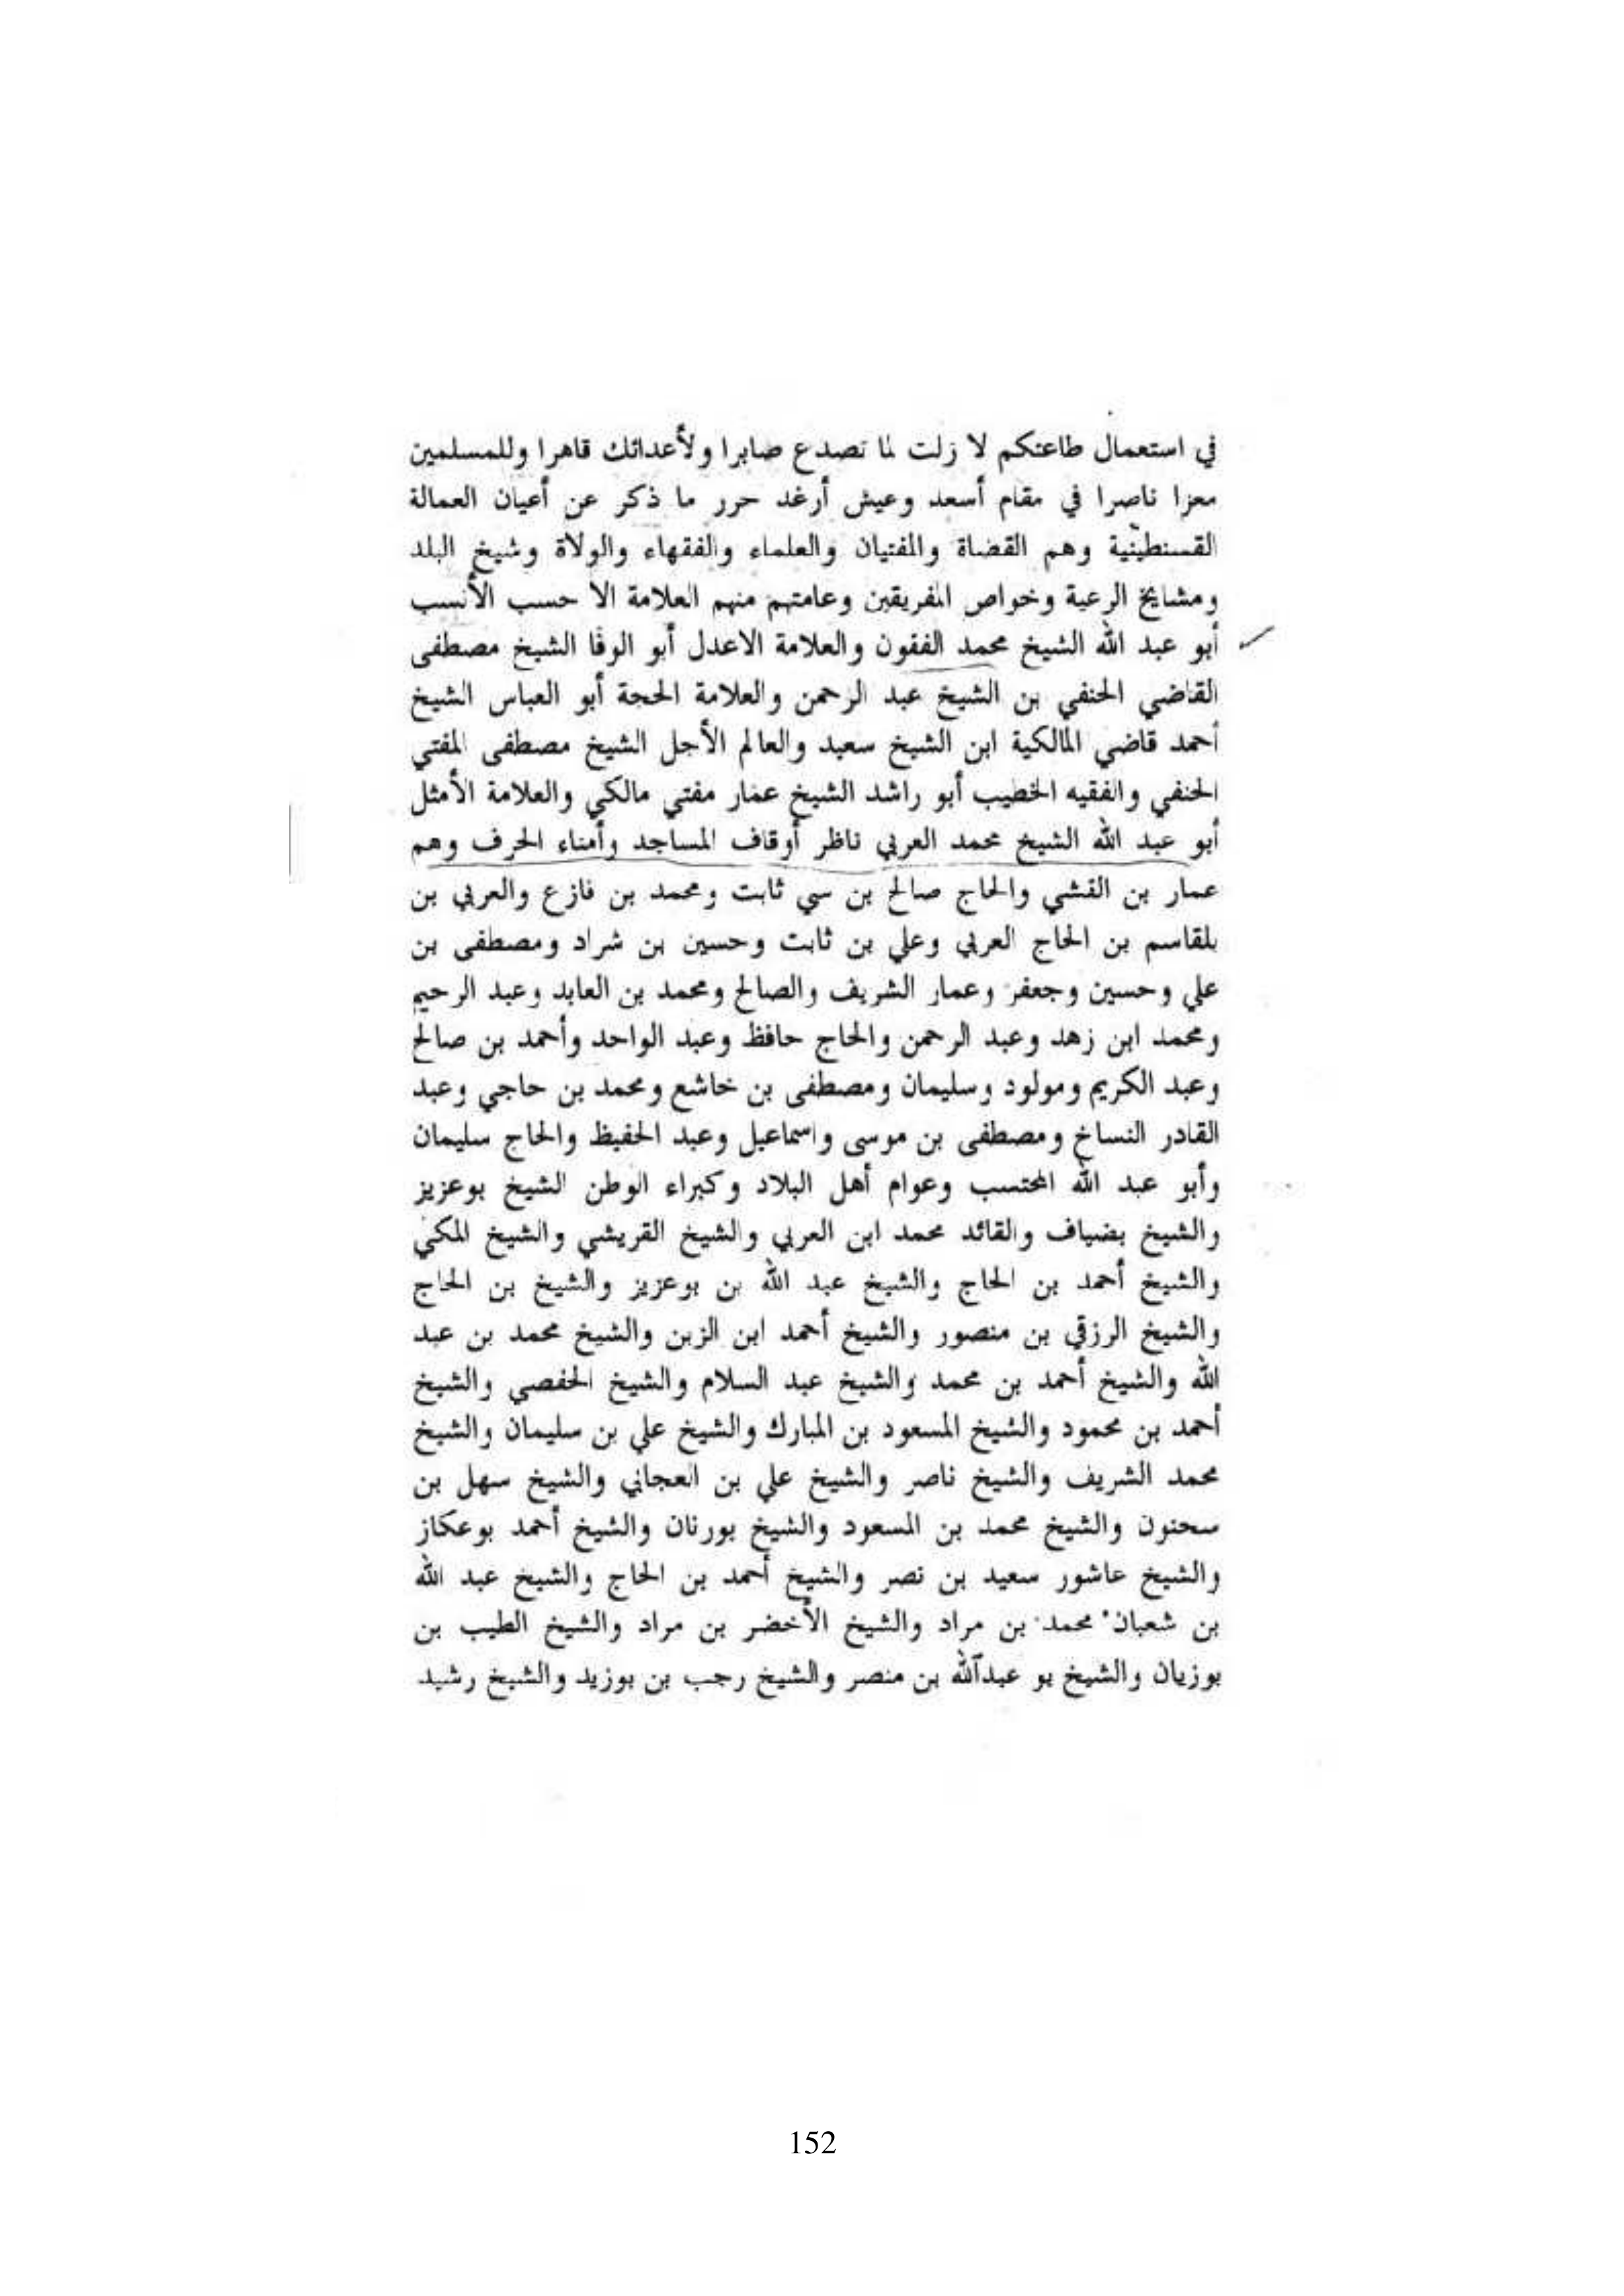 في استعمال طاعتكم لا زلت لما تصدع صابرا ولأعدائك قاهرا وللمسلمين
معزا ناصرا في مقام أسعد وعيش أرغد حرر ما ذكر عن أعيان العمالة
القسنطينية وهم القضاة والمفتيان والعلماء والفقهاء والولاة وشيخ البلد
ومشايخ الرعية وخواص الفريقين وعامتهم منهم العلامة الا حسب الأنسب
أبو عبد الله الشيخ محمد الفقون والعلامة الاعدل أبو الوفا الشيخ مصطفى
القاضي الحنفي بن الشيخ عبد الرحمن والعلامة الحجة أبو العباس الشيخ
أحمد قاضي المالكية ابن الشيخ سعيد والعالم الأجل الشيخ مصطفى المفتي
الحنفي والفقيه الخطيب أبو راشد الشيخ عمار مفتي مالكي والعلامة الأمثل
أبو عبد الله الشيخ محمد العربي ناظر أوقاف المساجد وأمناء الحرف وهم
عمار بن القشي والحاج صالح بن سي ثابت ومحمد بن فازع والعربي بن
بلقاسم بن الحاج العربي وعلي بن ثابت وحسين بن شراد ومصطفى بن
علي وحسين وجعفر وعمار الشريف والصالح ومحمد بن العابد وعبد الرحيم
ومحمد ابن زهد وعبد الرحمن والحاج حافظ وعبد الواحد وأحمد بن صالح
وعبد الكريم ومولود وسليمان ومصطفى بن خاشع ومحمد بن حاجي وعبد
القادر النساخ ومصطفى بن موسى واسماعيل وعبد الحفيظ والحاج سليمان
وأبو عبد الله المحتسب وعوام أهل البلاد وكبراء الوطن الشيخ بوعزيز
والشيخ بضياف والقائد محمد ابن العربي والشيخ القريشي والشيخ المكي
والشيخ أحمد بن الحاج والشيخ عبد الله بن بوعزيز والشيخ بن الحاج
والشيخ الرزقي بن منصور والشيخ أحمد ابن الزبن والشيخ محمد بن عبد
الله والشيخ أحمد بن محمد والشيخ عبد السلام والشيخ الحفصي والشيخ
أحمد بن محمود والشيخ المسعود بن المبارك والشيخ علي بن سليمان والشيخ
محمد الشريف والشيخ ناصر والشيخ علي بن العجاني والشيخ سهل بن
سحنون والشيخ محمد بن المسعود والشيخ بورنان والشيخ أحمد بوعكاز
والشيخ عاشور سعيد بن نصر والشيخ أحمد بن الحاج والشيخ عبد الله
بن شعبان محمد بن مراد والشيخ الأخضر بن مراد والشيخ الطيب بن
بوزيان والشيخ بو عبدالله بن منصر والشيخ رجب بن بوزيد والشيخ رشيد
152